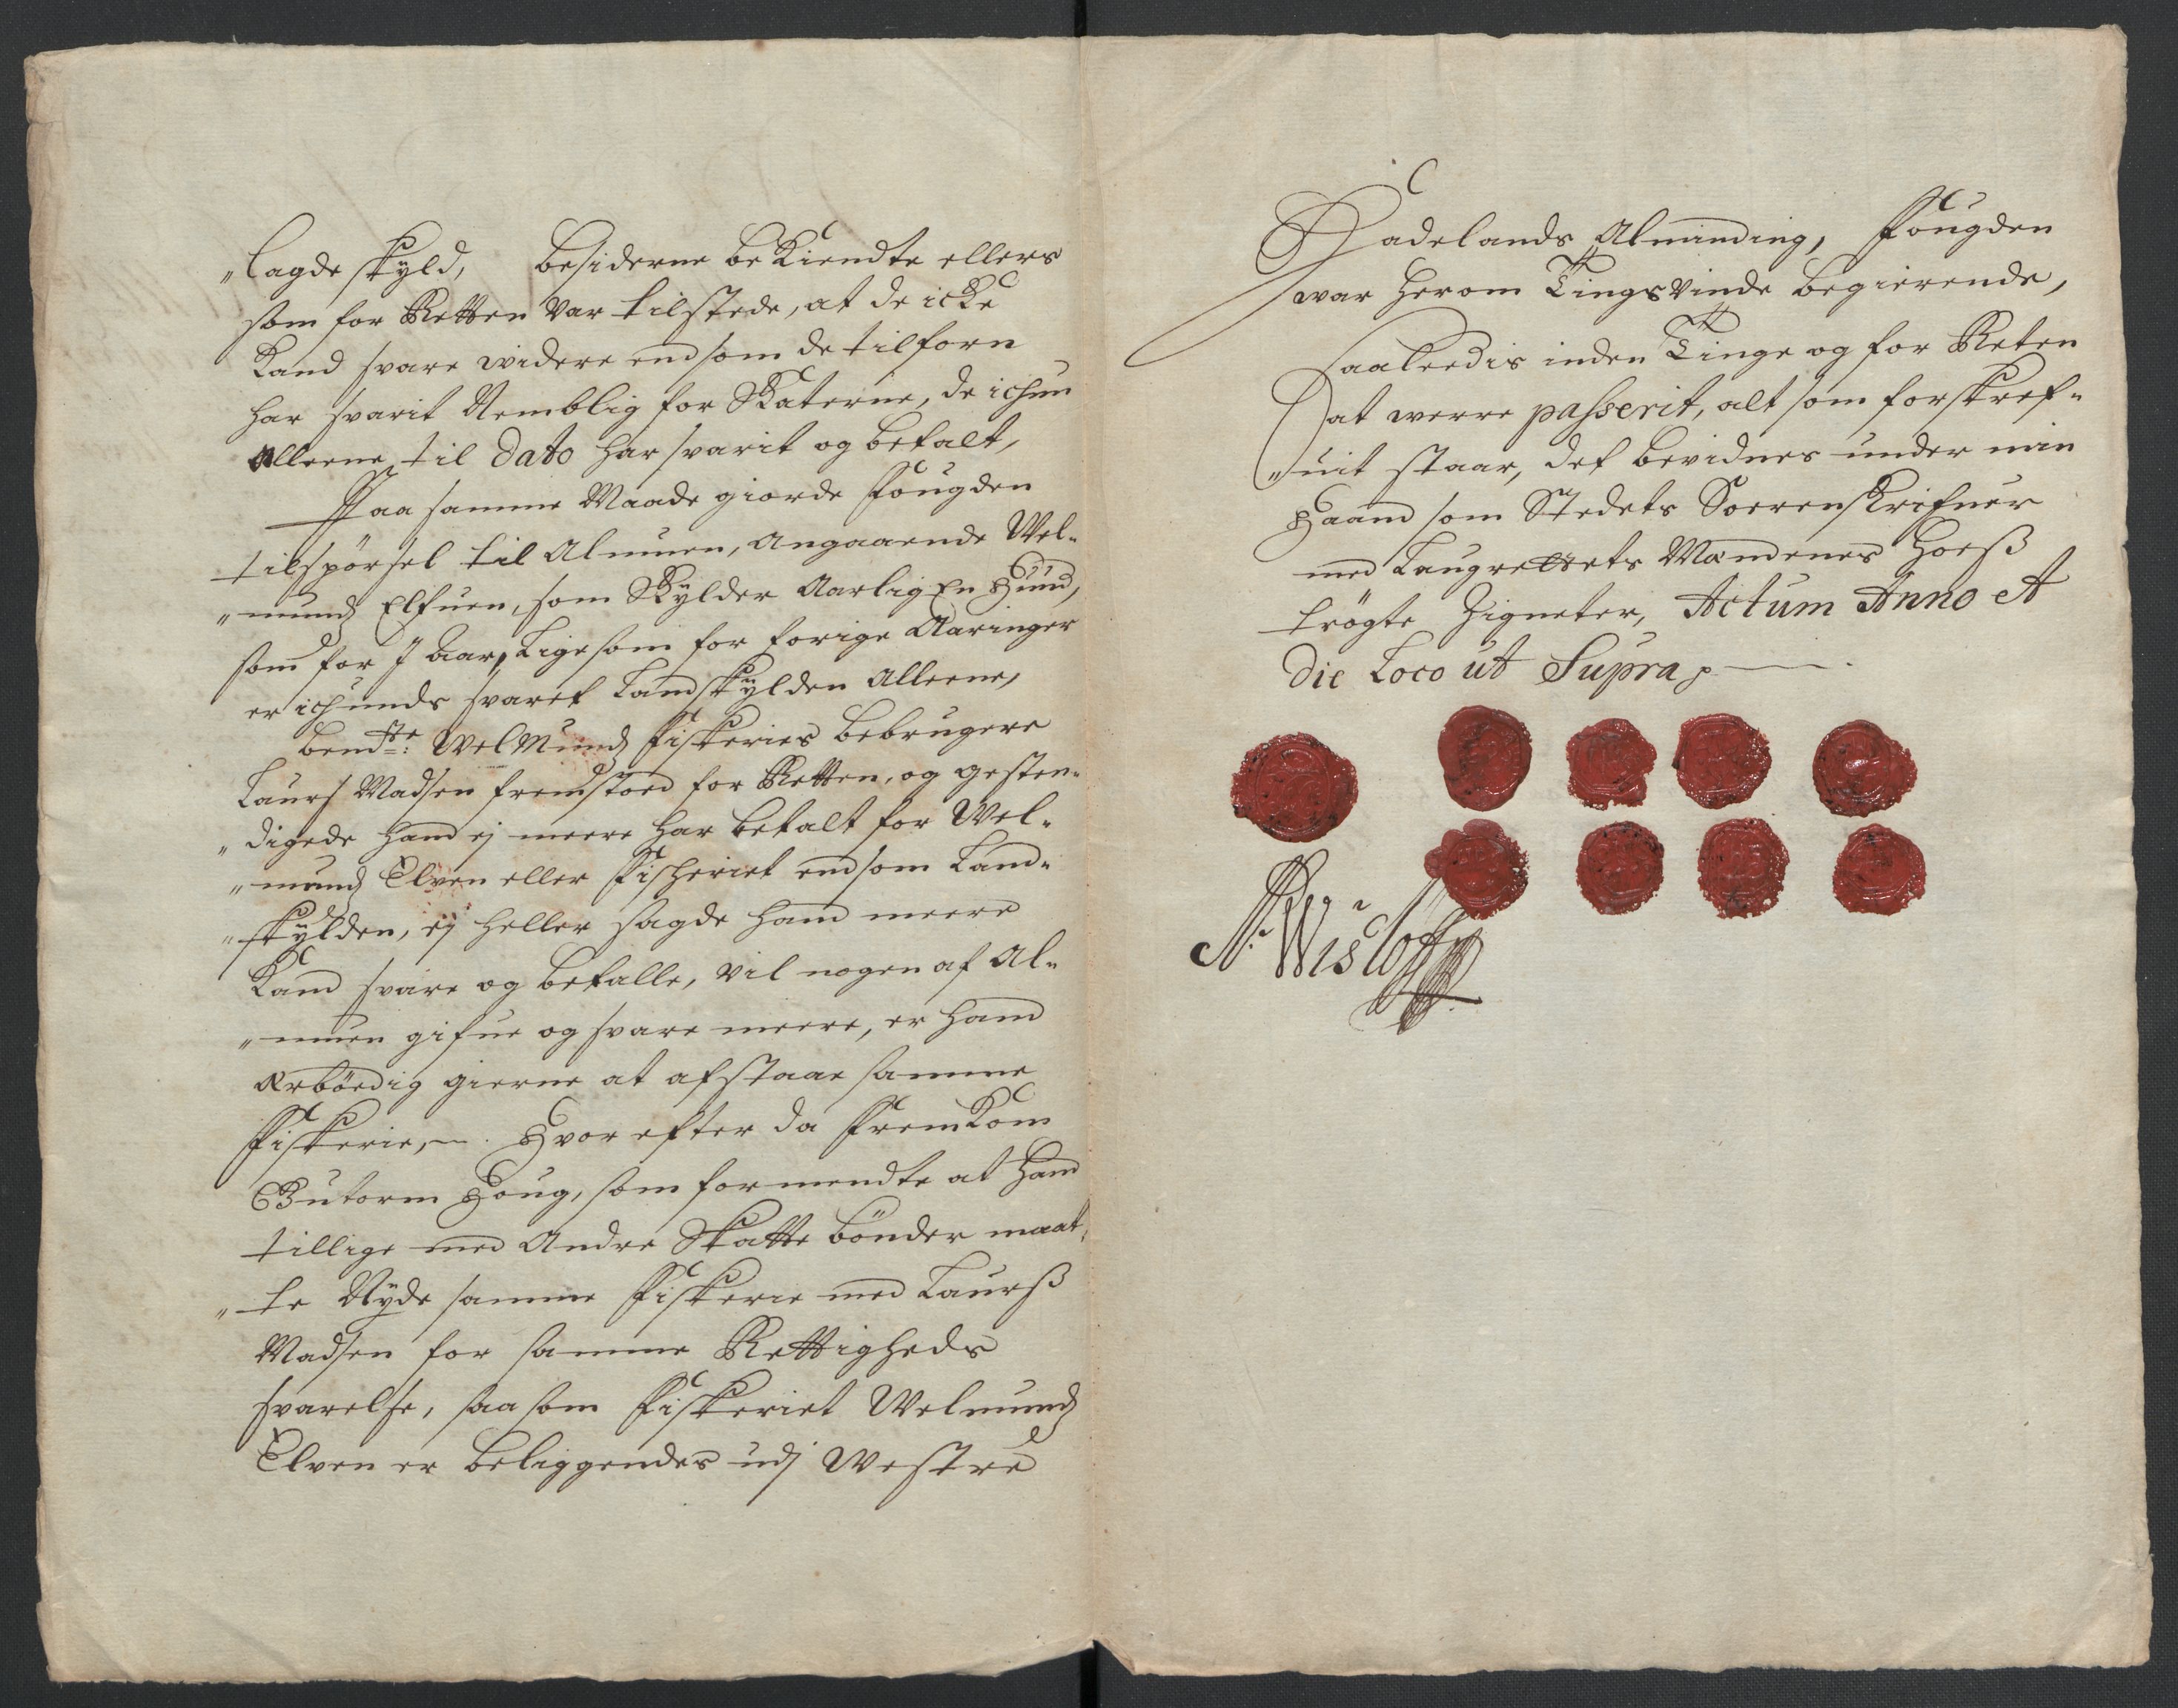 "lagde skyld, besiderne beKiendte ellers
som for Retten var tilstede, at de icke
Kand svare widere end som de tilforn
har svarit Nemblig for Skaterne, de ichun
alleene til Dato har svarit og betalt,
Paa samme Maade giorde fougden
tilspörsel til Almuen, angaaende Wel-
"mund Elfuen, som Skylder Aarlig En Hund,
som for J Aar, Ligesom for forige Aaringer
er ichunds svaret Landskylden alleene,
bemdte: WelMunds fiskeries bebrugere
Laurs Madsen fremstoed for Retten, og gesten-
"digede hand ej meere har betalt for Wel-
"munds Elven eller fischeriet end som Land-
"skylden, ej heller sagde hand meere
Kand svare og betalle, vil nogen af Al-
"muen gifue og svare meere, er hand
ærbödig gierne at afstaae samme
fiskerie, Hvor efter da fremKom
Gutorm Houg, som formendte at hand
tillige med andre Skatte bönder maat-
"te Nyde samme fiskerie med Laurß
Madsen for samme Rettigheds
svarelse, saasom fiskeriet Welmunds
Elven er beliggendes udj westre
Hadelands Alminding, fougden
war herom Tingsvinde begierende,
Saaleedis inden Tinge og for Reten
at werre passerit, alt som forskref-
"uit staar, det bevidnes under min
Haand som Stedets Sorenskrifuer
med Laugrettets Mændenes hoeß
trögte Zigneter, Actum Anno et
Die Loco ut Supra
N: Wislöff